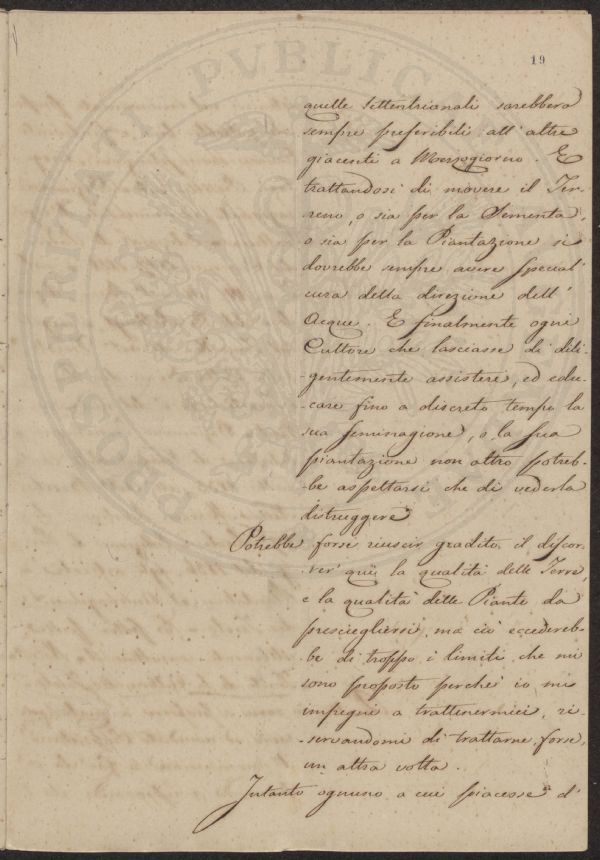 19
quelle settentrionali sarebbero
sempre preferibili all' altre
giacenti a Mezzogiorno. E
trattandosi di movere il Ter-
reno, o sia per la Sementa,
o sia per la Piantazione si
dovrebbe sempre avere special
cura della direzione dell'
Acque. E finalmente ogni
Cultore che lasciasse di dili-
-gentemente assistere, ed edu-
-care fino a discreto tempo la
sua seminagione, o la sua
piantazione non altro potreb-
-be aspettarsi che di vederla
distruggere
Potrebbe forse riuscir gradito il discor-
-rer' quì la qualità delle Terre,
e la qualità delle Piante da
presciegliersi, ma ciò eccedereb-
-be di troppo i limiti che mi
sono proposto perchè io mi
impegni a trattenermici, ri-
-servandomi di trattarne, forse,
un altra volta.
Intanto ognuno a cui piacesse d'
PROSPERITATI PUBLIC